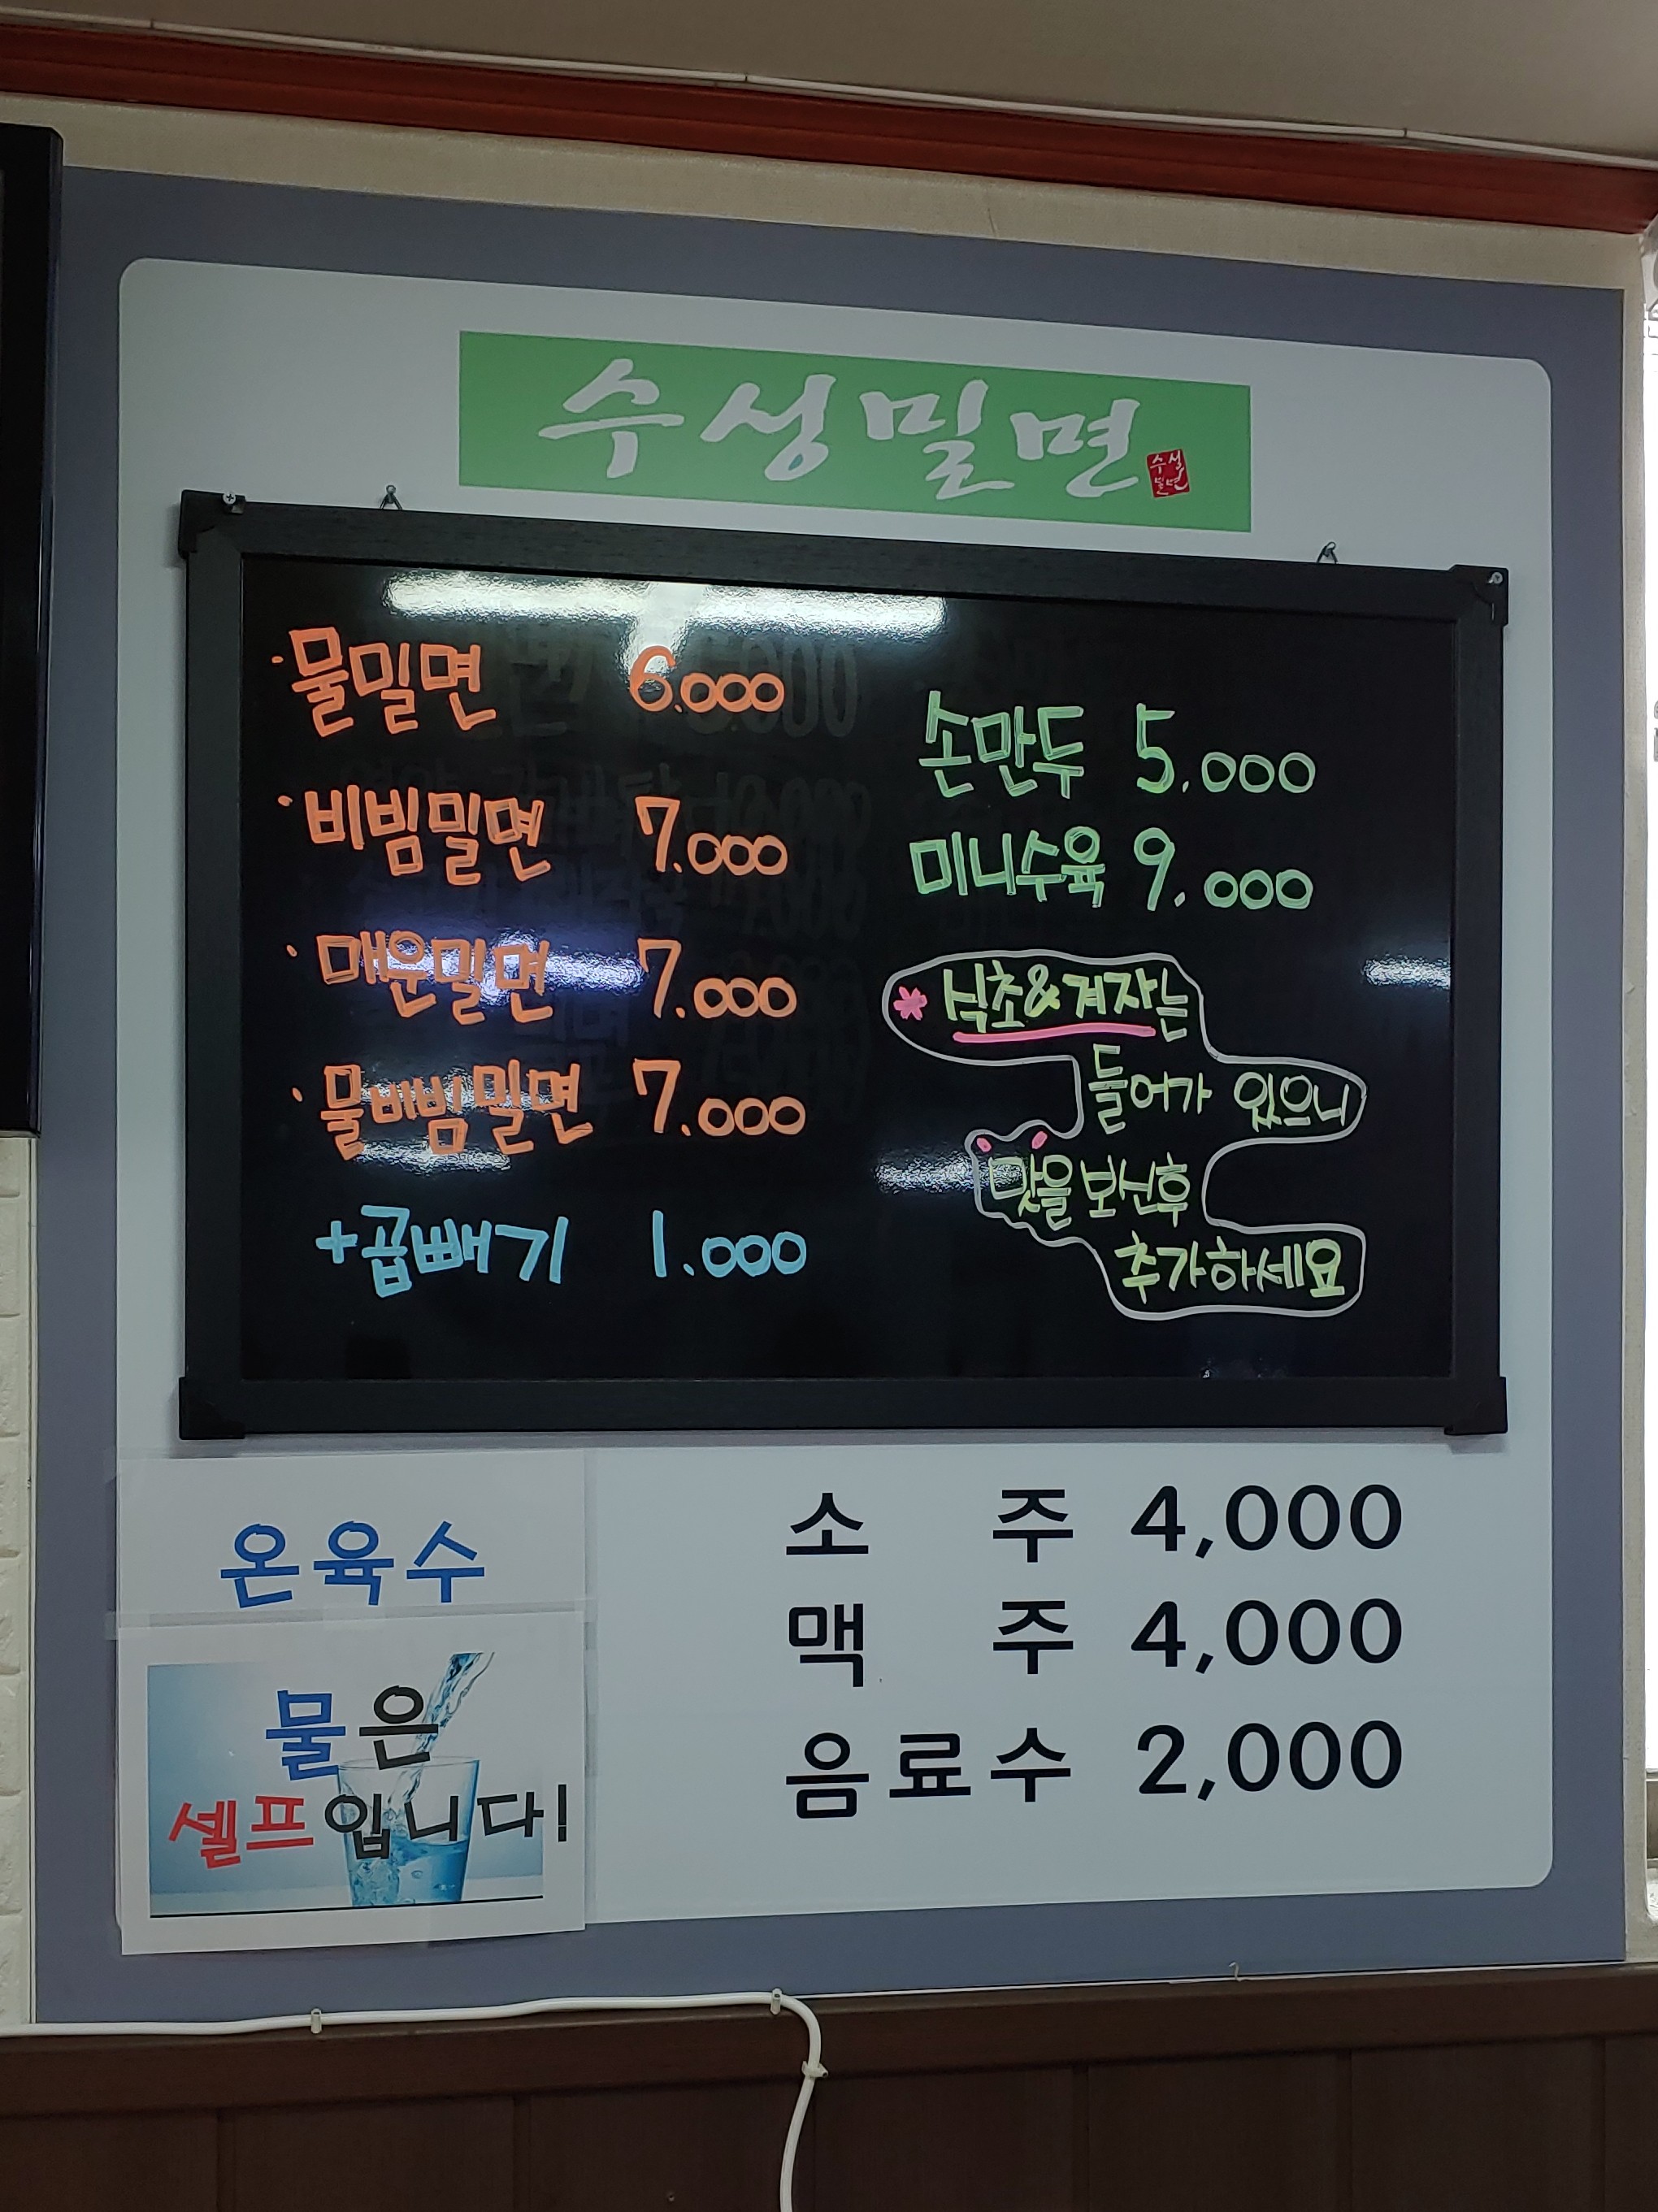 수성밀면
수성
밀면
·물밀면 6.000
·비빔밀면 7.000
·매운밀면 7.000
·물비빔밀면 7.000
+곱빼기 1.000
손만두 5.000
미니수육 9.000
* 식초&겨자는
들어가 있으니
맛을 보신후
추가하세요
온육수
물은
셀프입니다!
소 주 4,000
맥 주 4,000
음료수 2,000